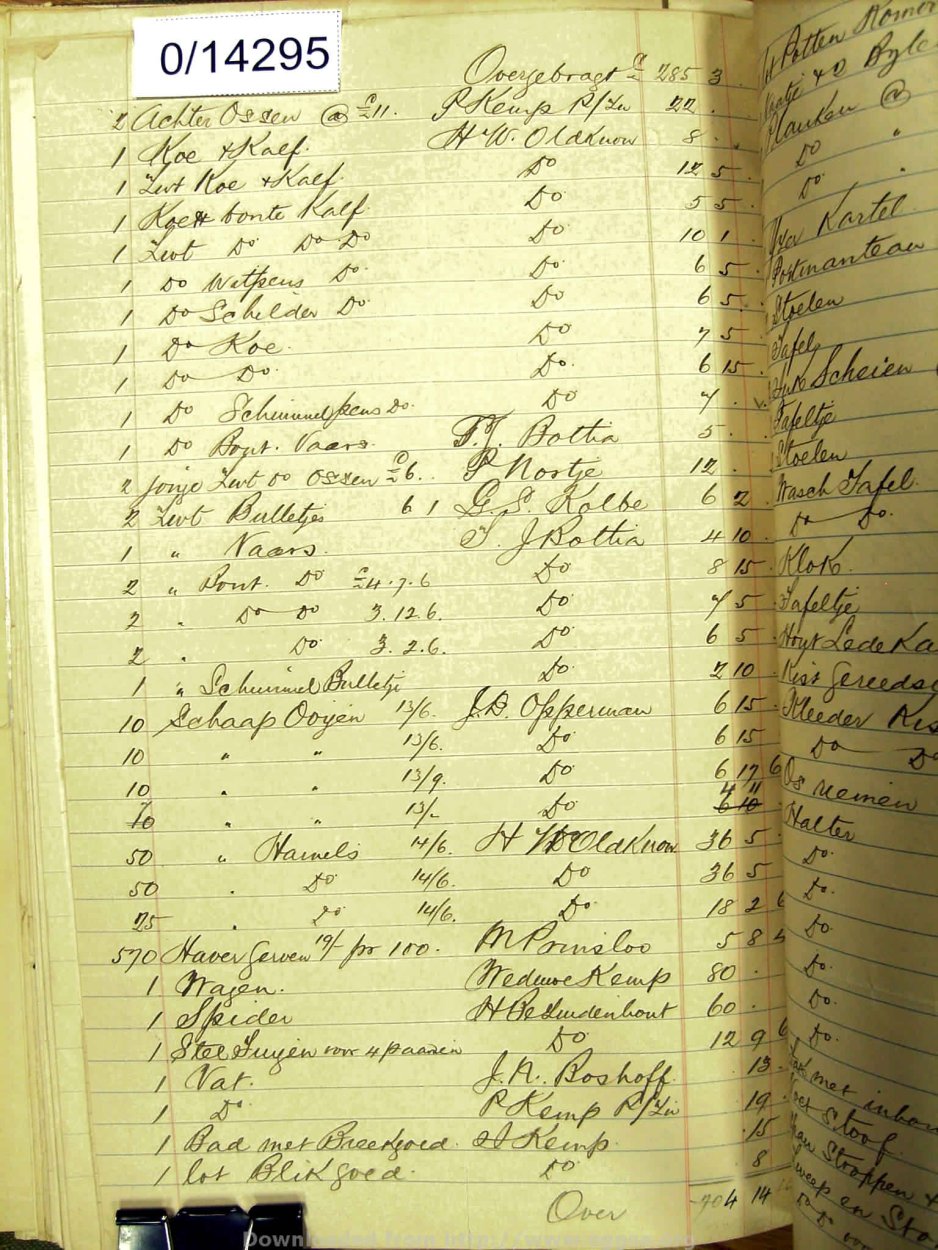 0/14295
Overgebragt £ 285 3
2 Achter Ossen @ £11. P Kemp P/Zn 22 .
1 Koe & Kalf. H W. Oldknow 8 .
1 Zwt Koe & Kalf. Do 12 5 .
1 Koe & bonte Kalf Do 5 5 .
1 Zwt Do Do Do Do 10 1 .
1 Do Witpens Do Do 6 5 .
1 Do Schilder Do Do 6 5 .
1 Do Koe. Do 7 5 .
1 Do Do. Do. 6 15 .
1 Do Schimmelpens Do. Do 7 .
1 Do Bont. Vaars. T.J. Bottia 5 .
2 jonge Zwt do Ossen £6. P Nortje 12 .
2 Zwt Bulletjes 6 1 G. S. Kolbe 6 2 .
1 " Vaars. T. J Bottia 4 10 .
2 " Bont. Do £4.7.6 Do 8 15 .
2 " Do Do 3.12.6. Do 7 5 .
2 " Do 3.2.6. Do 6 5 .
1 " Schimmel Bulletje Do 2 10 .
10 Schaap Ooijen 13/6. J.D. Opperman 6 15 .
10 " " 13/6. Do 6 15
10 " " 13/9. Do 6 17 6
" " 13/- Do 4 11
50 " Hamels 14/6. H W Oldknow 36 5
50 " Do 14/6. Do 36 5
25 " Do 14/6. Do 18 2 6
570 Haver Gerven 19/- pr 100. M Prinsloo 5 8
1 Wagen. Weduwe Kemp 80 .
1 Spider H Bezuidenhout 60 .
1 Stel Tuigen voor 4 paarden Do 12 9 6
1 Vat. J. N. Boshoff. 13
1 Do P Kemp P/Zn 19
1 Bad met Breekgoed. Kemp 15
1 lot Blikgoed. Do 8
Over 704 14
Potten
Planken @
Do "
Do
Kartel
Postmanteau
Stoelen
Tafel
Scheien
Tafeltje
Stoelen
Wasch Tafel.
Do Do.
Klok.
Tafeltje
Hout Ledeka
Kist Gereedsc
Kleeder Kis
Do Do
Os riemen
Halter
Do.
Do.
Do
Do.
Do.
Do.
met inhou
Stoof
Stroppen &
Sweep en
Downloaded from